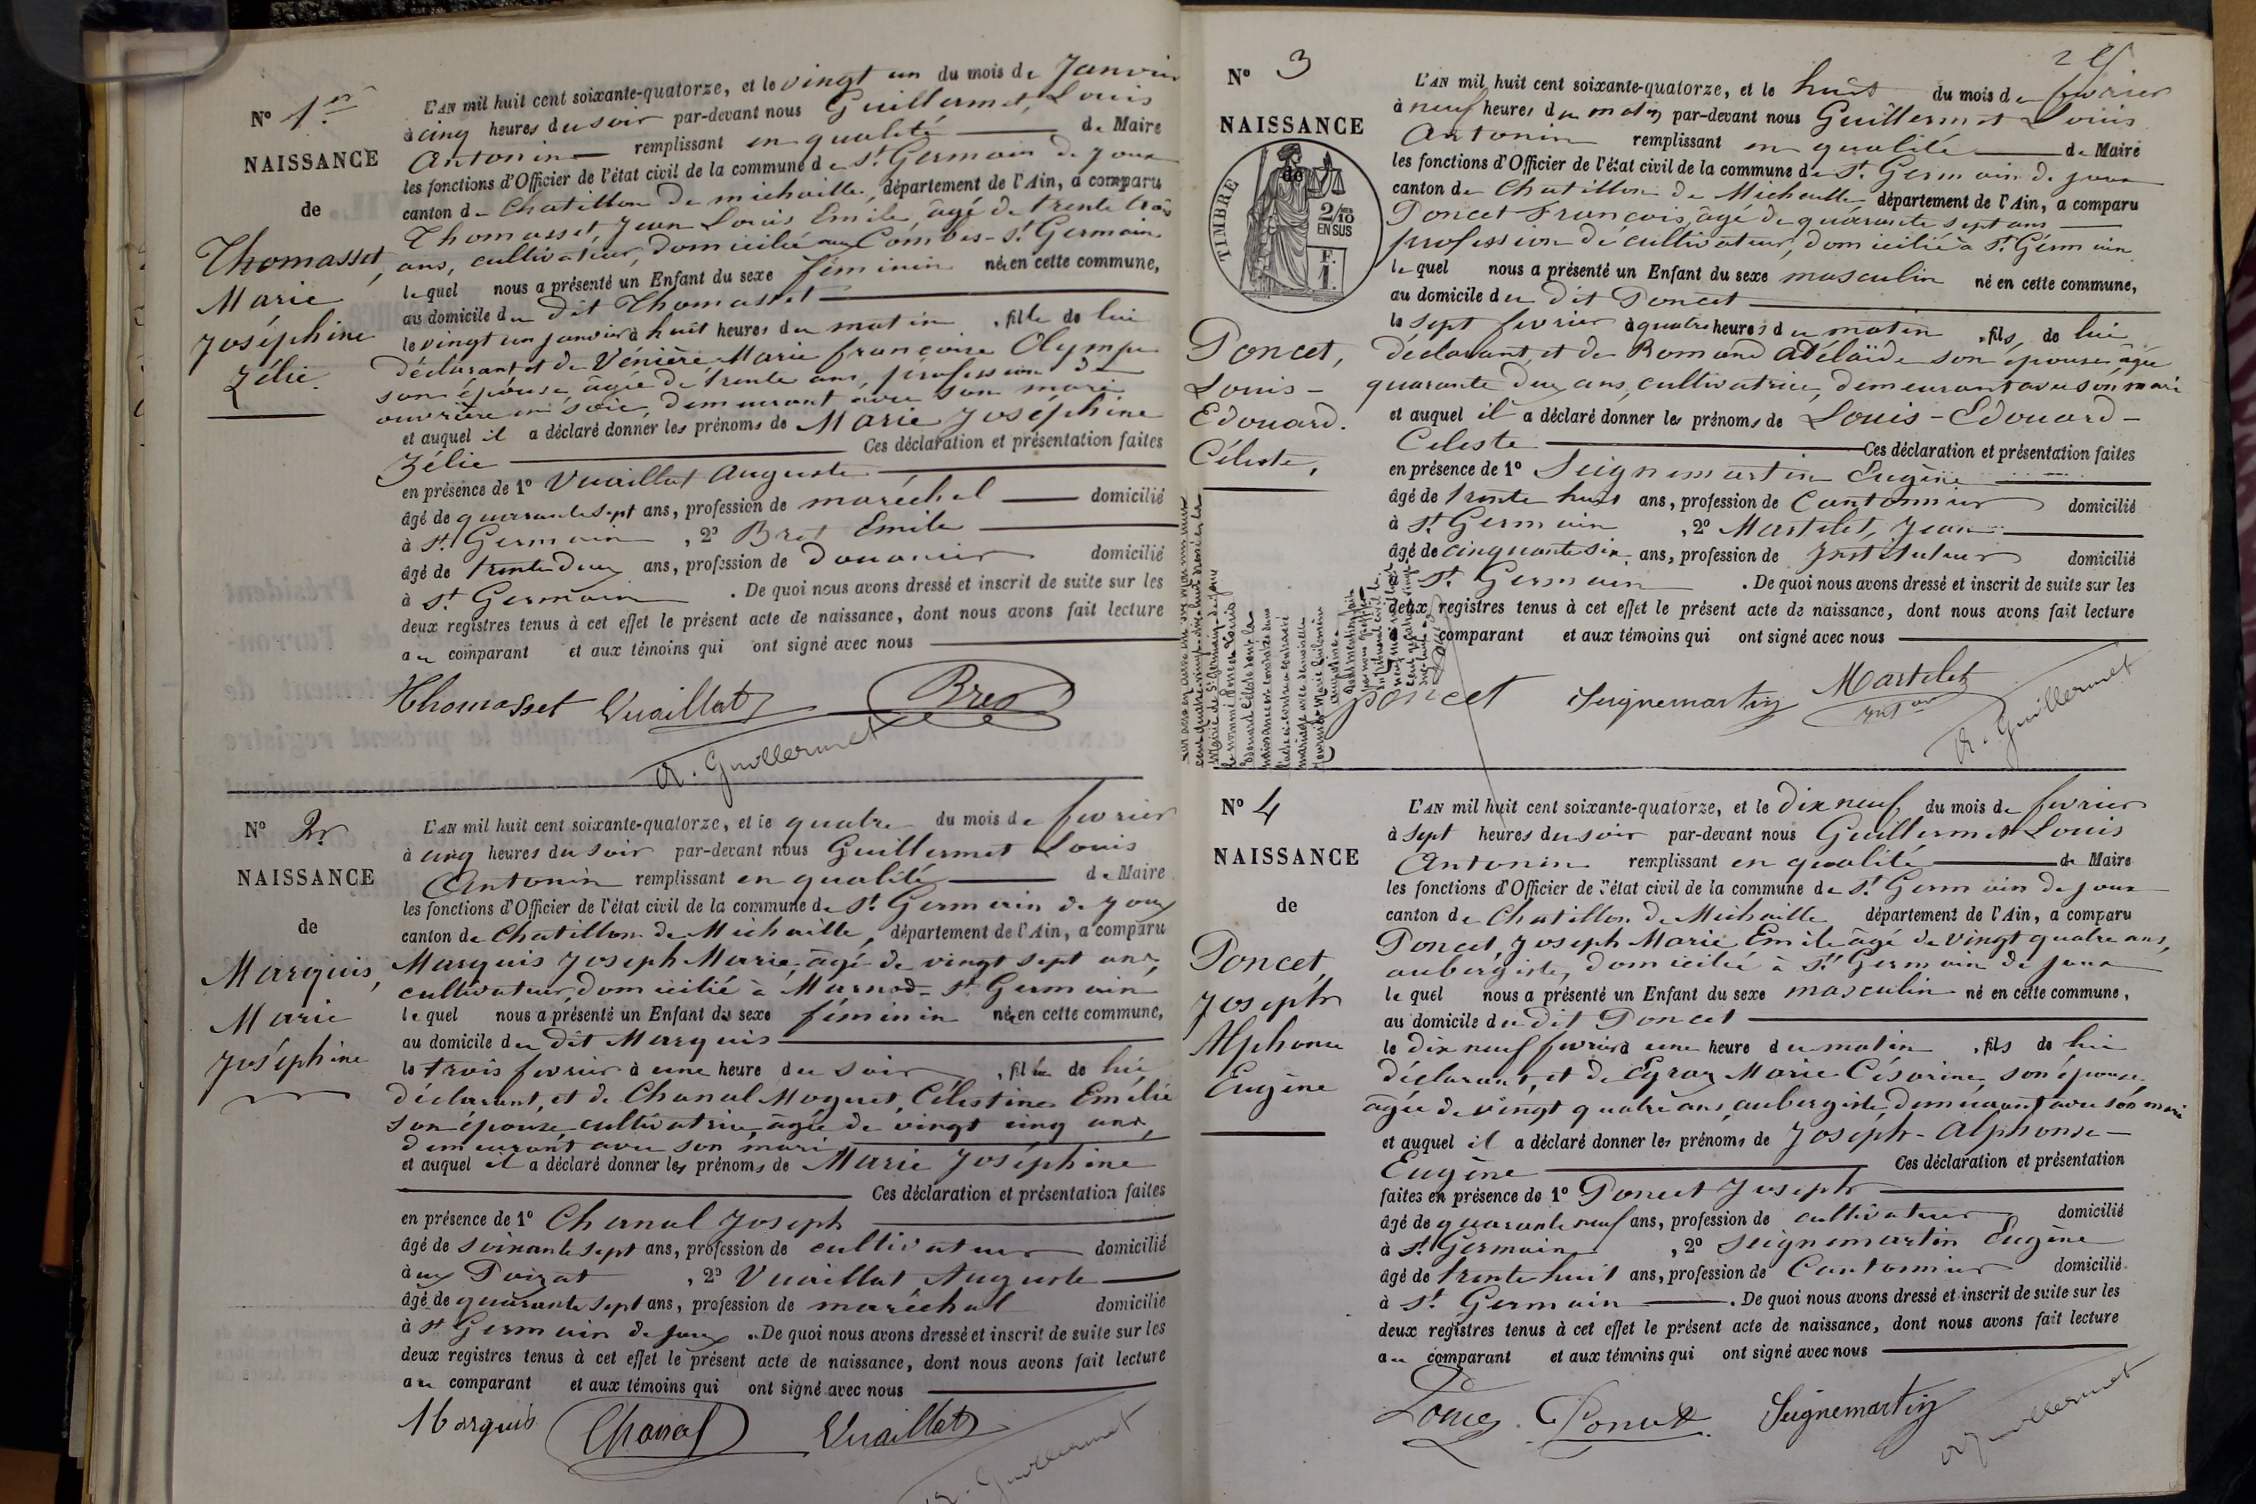 N° 1er
NAISSANCE
de
Thomasset,
Marie
Joséphine
Zélie.
L'AN mil huit cent soixante-quatorze, et le vingt un du mois de Janvier
à cinq heures du soir par-devant nous Guillermet, Louis
Antonin remplissant en qualité de Maire
les fonctions d'Officier de l'état civil de la commune de St Germain de Joux
canton de Chatillon de michaille, département de l'Ain, a comparu
Thomasset Jean Louis Emile, âgé de trente trois
ans, cultivateur, domicilié aux Combes-St Germain
lequel nous a présenté un Enfant du sexe féminin née en cette commune,
au domicile du dit Thomasset
le vingt un janvier à huit heures du matin, fille de lui
déclarant et de Vénière, Marie françoise Olympe
son épouse, âgée de trente ans, profession d
ouvrière en soie, demeurant avec son mari
et auquel il a déclaré donner les prénoms de Marie Joséphine
Zélie Ces déclaration et présentation faites
en présence de 1° Vuaillat Auguste
âgé de quarante sept ans, profession de maréchal domicilié
à St Germain, 2° Bret Emile
âgé de trente deux ans, profession de douanier domicilié
à St Germain. De quoi nous avons dressé et inscrit de suite sur les
deux registres tenus à cet effet le présent acte de naissance, dont nous avons fait lecture
au comparant et aux témoins qui ont signé avec nous
Thomasset Vuaillat Bret
A. Guillermet
N° 2
NAISSANCE
de
Marquis,
Marie
Joséphine
L'AN mil huit cent soixante-quatorze, et le quatre du mois de fevrier
à cinq heures du soir par-devant nous Guillermet Louis
Antonin remplissant en qualité de Maire
les fonctions d'Officier de l'état civil de la commune de St Germain de Joux
canton de Chatillon de Michaille, département de l'Ain, a comparu
Marquis Joseph Marie, âgé de vingt sept ans,
cultivateur, domicilié à Marnod-St Germain
lequel nous a présenté un Enfant du sexe féminin née en cette commune,
au domicile du dit Marquis
le trois fevrier à une heure du soir, fille de lui
déclarant, et de Chanal Moguet, Célestine Emélie
son épouse, cultivatrice, âgée de vingt cinq ans,
demeurant avec son mari
et auquel il a déclaré donner les prénoms de Marie Joséphine
Ces déclaration et présentation faites
en présence de 1° Chanal Joseph
âgé de soixante sept ans, profession de cultivateur domicilié
aux Poizat, 2° Vuaillat Auguste
âgé de quarante sept ans, profession de maréchal domicilié
à St Germain de Joux. De quoi nous avons dressé et inscrit de suite sur les
deux registres tenus à cet effet le présent acte de naissance, dont nous avons fait lecture
au comparant et aux témoins qui ont signé avec nous
Marquis Chanal Vuaillat
A. Guillermet
N° 3
NAISSANCE
de
TIMBRE
2/10
EN SUS
F.
1.
Poncet,
Louis-
Edouard.
Céleste,
L'AN mil huit cent soixante-quatorze, et le huit du mois de fevrier
à neuf heures du matin par-devant nous Guillermet Louis
Antonin remplissant en qualité de Maire
les fonctions d'Officier de l'état civil de la commune de St Germain de joux
canton de Chatillon de Michaille département de l'Ain, a comparu
Poncet François, âgé de quarante sept ans
profession de cultivateur, domicilié à St Germain
lequel nous a présenté un Enfant du sexe masculin né en cette commune,
au domicile du dit Poncet
le sept fevrier à quatre heures du matin, fils de lui
déclarant, et de Romand Adélaïde son épouse âgée
quarante deux ans, cultivatrice, demeurant avec son mari
et auquel il a déclaré donner les prénoms de Louis-Edouard-
Celeste Ces déclaration et présentation faites
en présence de 1° Seignemartin Eugène
âgé de trente huit ans, profession de Cantonnier domicilié
à St Germain, 2° Martelet, Jean
âgé de cinquante six ans, profession de Instituteur domicilié
St Germain. De quoi nous avons dressé et inscrit de suite sur les
deux registres tenus à cet effet le présent acte de naissance, dont nous avons fait lecture
comparant et aux témoins qui ont signé avec nous
Poncet Seignemartin Martelet
A. Guillermet
N° 4
NAISSANCE
de
Poncet,
Joseph
Alphonse
Eugène
L'AN mil huit cent soixante-quatorze, et le dix neuf du mois de fevrier
à sept heures du soir par-devant nous Guillermet Louis
Antonin remplissant en qualité de Maire
les fonctions d'Officier de l'état civil de la commune de St Germain de joux
canton de Chatillon de Michaille département de l'Ain, a comparu
Poncet, Joseph Marie Emile âgé de vingt quatre ans,
aubergiste, domicilié à St Germain de joux
lequel nous a présenté un Enfant du sexe masculin né en cette commune,
au domicile du dit Poncet
le dix neuf fevrier à une heure du matin, fils de lui
déclarant, et de Egraz Marie Césarine, son épouse
âgée de vingt quatre ans, aubergiste, demeurant avec son mari
et auquel il a déclaré donner les prénoms de Joseph-Alphonse-
Eugène Ces déclaration et présentation
faites en présence de 1° Poncet Joseph
âgé de quarante neuf ans, profession de cultivateur domicilié
à St Germain, 2° Seignemartin Eugène
âgé de trente huit ans, profession de Cantonnier domicilié
à St Germain. De quoi nous avons dressé et inscrit de suite sur les
deux registres tenus à cet effet le présent acte de naissance, dont nous avons fait lecture
au comparant et aux témoins qui ont signé avec nous
Poncet Seignemartin
A. Guillermet